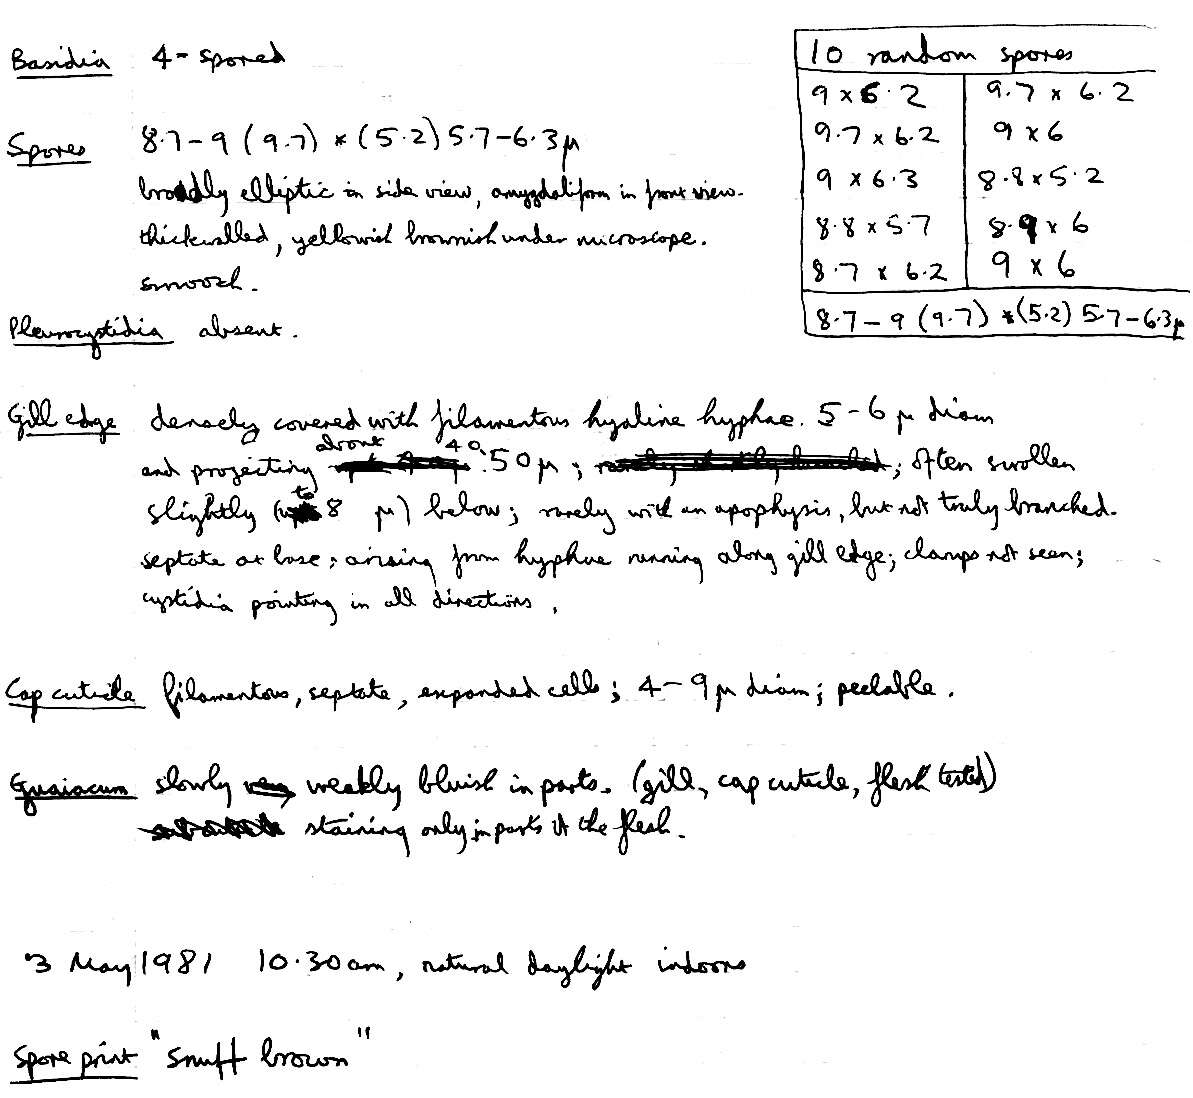 Basidia 4-spored
Spores 8.7-9 (9.7) × (5.2) 5.7-6.3µ
broadly elliptic in side view, amygdaliform in front view.
thickwalled, yellowish brownish under microscope.
smooth.
Pleurocystidia absent.
10 random spores
9 × 6.2 9.7 × 6.2
9.7 × 6.2 9 × 6
9 × 6.3 8.8 × 5.2
8.8 × 5.7 8.9 × 6
8.7 × 6.2 9 × 6
8.7-9 (9.7) × (5.2) 5.7-6.3µ
Gill edge densely covered with filamentous hyaline hyphae. 5-6 µ diam
and projecting about 40-50µ; often swollen
slightly (to 8 µ) below; rarely with an apophysis, but not truly branched.
septate at base; arising from hyphae running along gill edge; clamps not seen;
cystidia pointing in all directions.
Cap cuticle filamentous, septate, expanded cells; 4-9µ diam; peelable.
Guaiacum slowly weakly bluish in parts. (gill, cap cuticle, flesh tested)
staining only in parts of the flesh.
3 May 1981 10.30am, natural daylight indoors
Spore print "snuff brown"